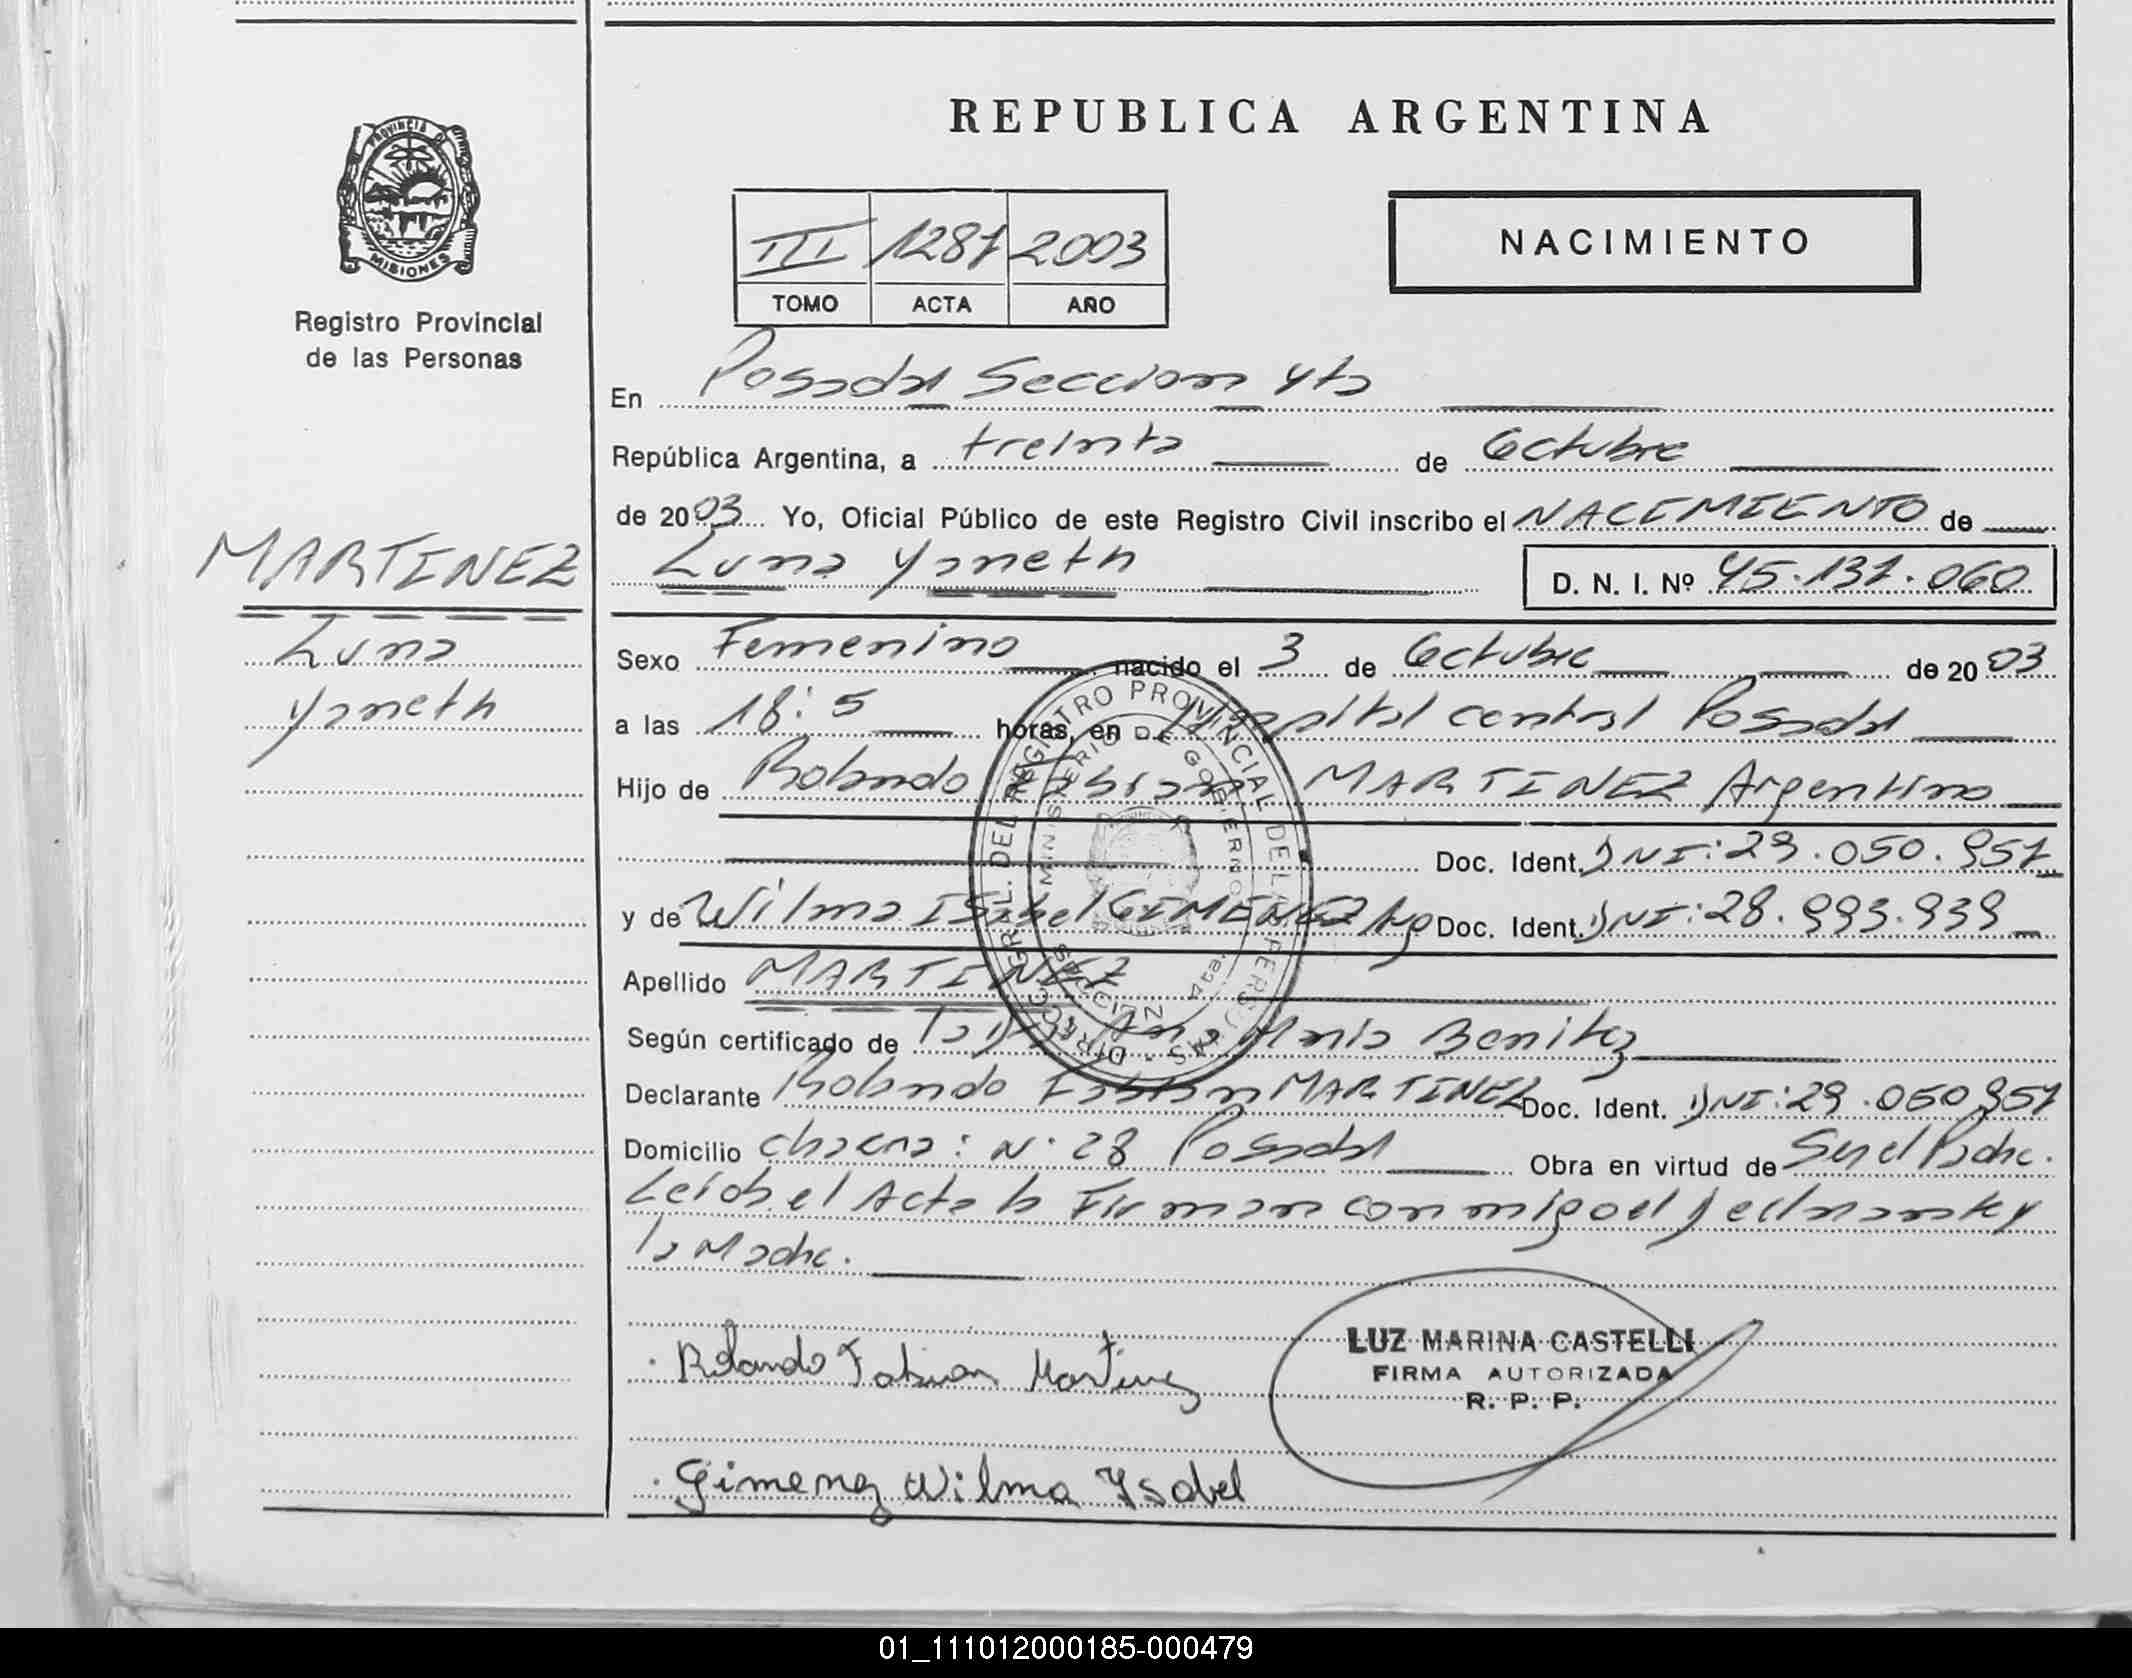 PROVINCIA D
MISIONES
Registro Provincial
de las Personas
MARTINEZ
Luna
Yaneth
REPUBLICA ARGENTINA
III 1287 2003
TOMO ACTA AÑO
NACIMIENTO
En Posadas Seccion 4ta
República Argentina, a treinta de Octubre
de 2003 Yo, Oficial Público de este Registro Civil inscribo el NACIMIENTO de
Luna Yaneth D. N. I. Nº 45.137.060
Sexo Femenino nacido el 3 de Octubre de 2003
a las 18:5 horas, en Hospital central Posadas
Hijo de Rolando Fabian MARTINEZ Argentino
Doc. Ident. DNI: 29.050.957
y de Wilma Isabel GIMENEZ Arg Doc. Ident. DNI: 28.993.939
Apellido MARTINEZ
Según certificado de la Dra Ana Maria Benitez
Declarante Rolando Fabian MARTINEZ Doc. Ident. DNI: 29.050.957
Domicilio chacra: N° 28 Posadas Obra en virtud de Ser el Padre.
Leida el Acta la Firman conmigo el declarante y
la Madre.
DIRECC. GRAL. DEL REGISTRO PROVINCIAL DE LAS PERSONAS
MINISTERIO DE GOBIERNO
SECCION 4ta.
Rolando Fabian Martinez
LUZ MARINA CASTELLI
FIRMA AUTORIZADA
R. P. P.
Gimenez Wilma Ysabel
01_111012000185-000479